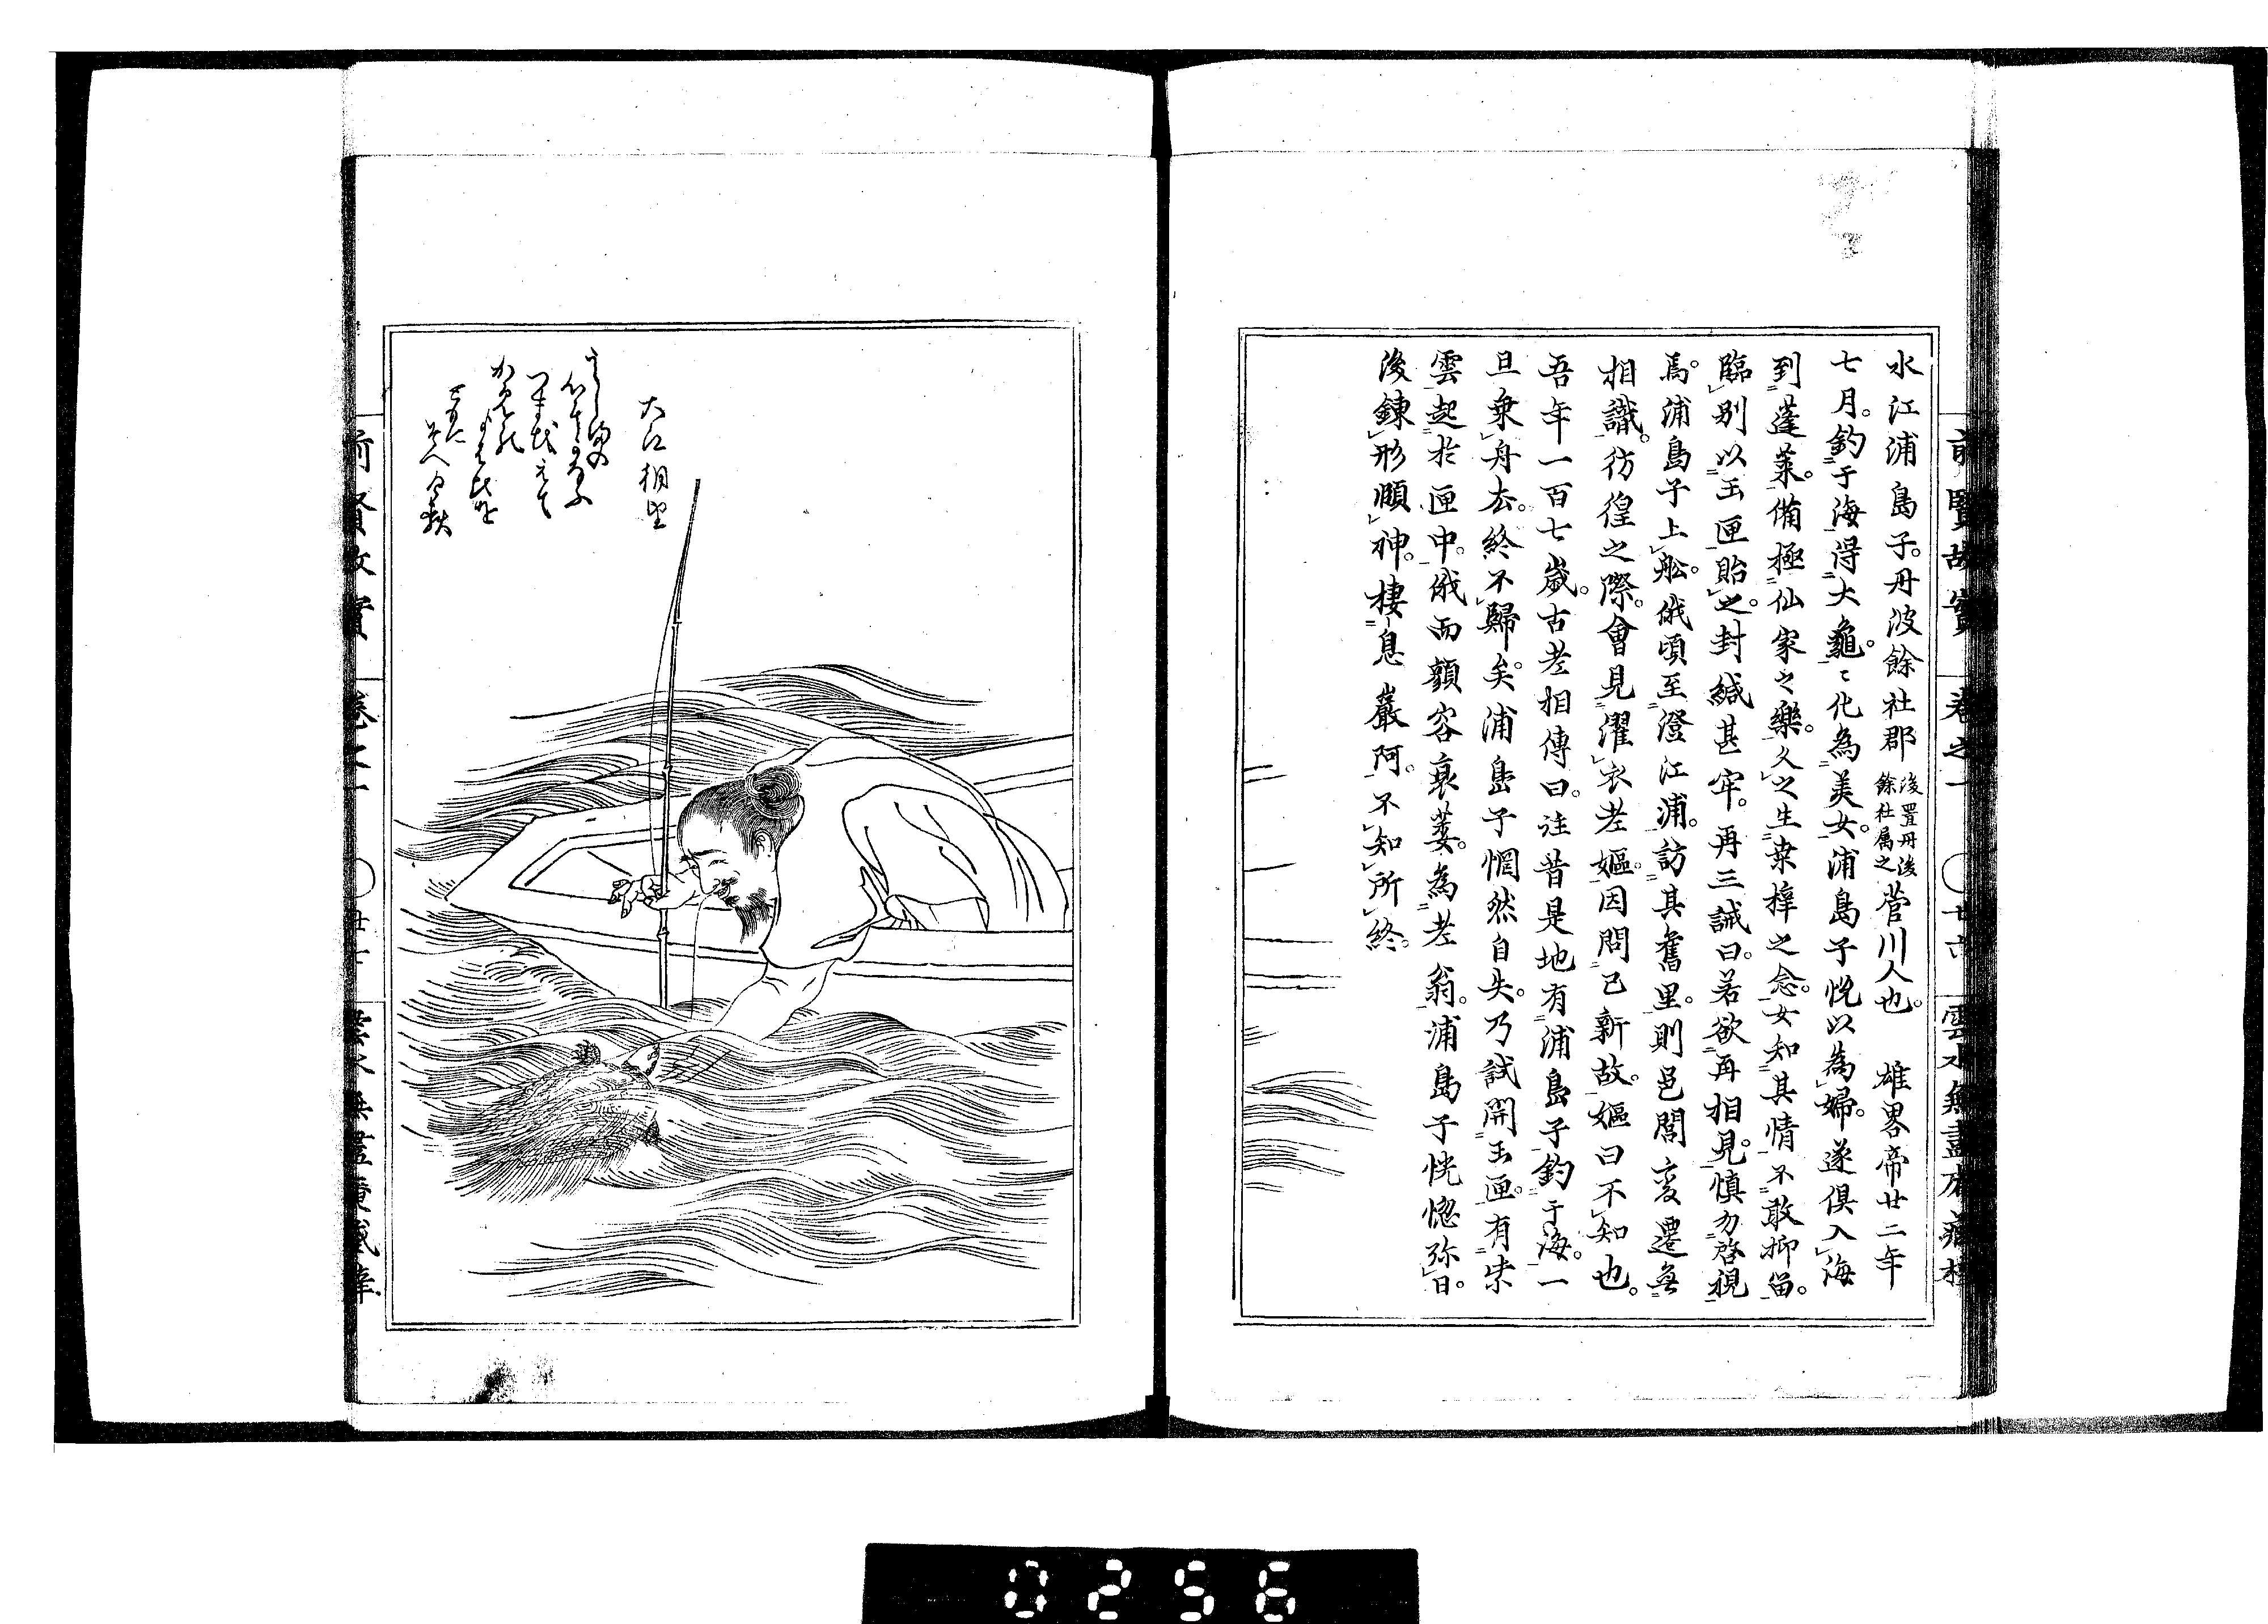 前賢故實 卷之一 〇 廿六 雲水無盡庵藏梓
水江浦島子。丹波餘社郡 後置丹後餘社属之 菅川人也。 雄畧帝廿二年
七月。釣于海得大龜。〻化為美女。浦島子恍以為婦。遂俱入海
到蓬萊。備極仙家之樂。久之生桒梓之念。女知其情不敢抑留。
臨別以玉匣貽之。封緘甚牢。再三誡曰。若欲再相見。慎勿啓視
焉。浦島子上舩。俄頃至澄江浦。訪其舊里。則邑閭変遷無
相識。彷徨之際。會見濯衣老嫗。因問已新故。嫗曰不知也。
吾年一百七歲。古老相傳曰。往昔是地有浦島子釣于海。一
旦乗舟去。終不歸矣。浦島子惘然自失。乃試開玉匣。有紫
雲起於匣中。俄而顏容衰萎。為老翁。浦島子恍惚弥日。
後鍊形頤神。棲息巖阿。不知所終。
大江相望
前賢故實